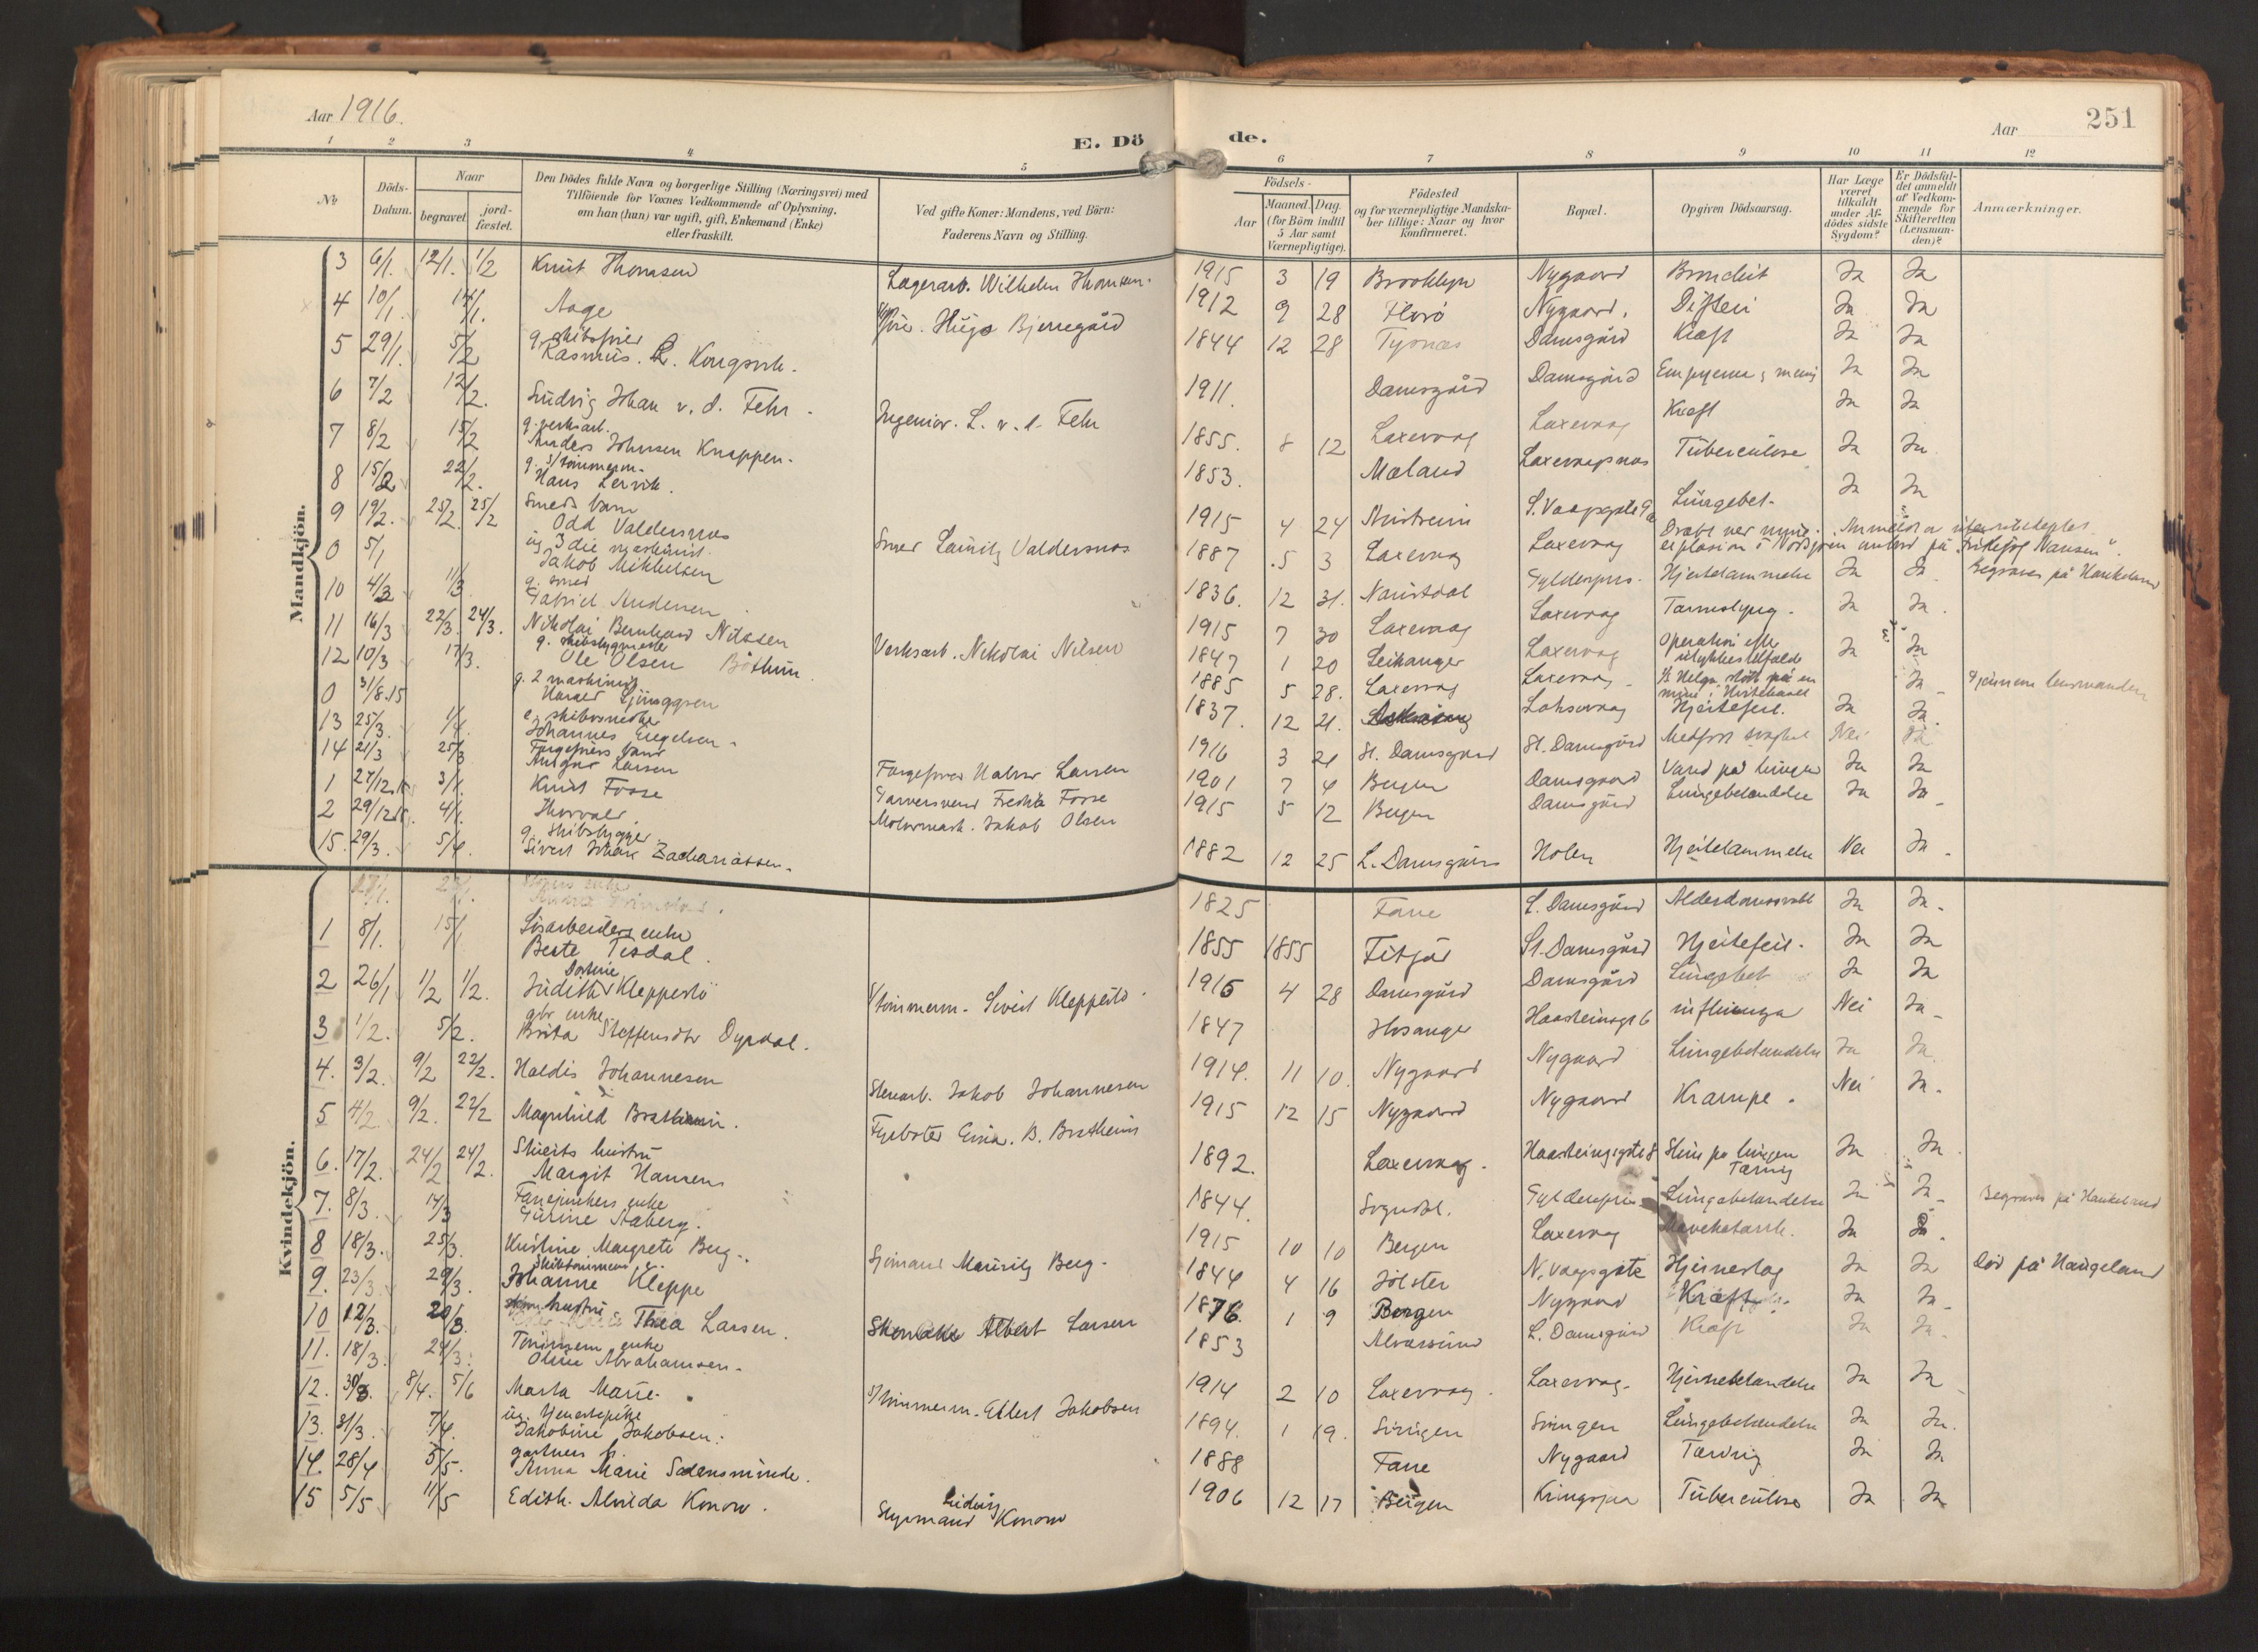 Aar 1916.
E. Dö
de.
Aar
251
1 2 3 4 5 6 7 8 9 10 11 12
No
Döds-Datum.
Naar
begravet.
jord-fæstet.
Den Dödes fulde Navn og borgerlige Stilling (Næringsvei) med
Tilföiende for Voxnes Vedkommende af Oplysning,
om han (hun) var ugift, gift, Enkemand (Enke)
eller fraskilt.
Ved gifte Koner: Mandens, ved Börn:
Faderens Navn og Stilling.
Födsels-
Aar
Maaned. Dag.
(for Börn indtil
5 Aar samt
Værnepligtige).
Födested
og for værnepligtige Mandska-
ber tillige: Naar og hvor
konfirmeret.
Bopæl.
Opgiven Dödsaarsag.
Har Læge
været
tilkaldt
under Af-
dödes sidste
Sygdom?
Er Dödsfal-
det anmeldt
af Vedkom-
mende for
Skifteretten
(Lensman-
den)?
Anmærkninger.
Mandkjön.
3 6/1. 12/1. 1/2 Knut Thomsen Lagerarb. Wilhelm Thomsen. 1915 3 19 Brooklyn Nygaard Bronchit Ja Ja
4 10/1. 14/1. Aage Hugo Bjerregård 1912 9 28 Florö Nygaard. Difteri Ja Ja
5 29/1. 5/2 g. skibsfører
Rasmus. Kongsvik. 1844 12 28 Tysnæs Damsgård Kræft Ja Ja
6 7/2 12/2. Ludvig Johan v. d. Fehr. Ingeniør. L. v. d. Fehr 1911. Damsgård Damsgård Empyeme Ja Ja
7 8/2 15/2 g. verksarb.
Anders Johnsen Knappen. 1855. 8 12 Laxevaag Laxevaag Kræft Ja Ja
8 15/2 22/2. g. s/tømmerm.
Hans Lervik. 1853. Mæland Laxevaagsnæs Tuberculose Ja Ja
9 19/2. 25/2. 25/2 Smeds barn
Odd Valdersnæs Smed Lauritz Valdersnæs 1915 4 24 S. Vaagsgate 9a Lungebet. Ja Ja
0 5/1 ug 3die maskinist.
Jakob Mikkelsen 1887 5 3 Laxevaag Laxevaag Dræbt ved mine-
explosion i Nordsjøen ombord på "Fridtjof Nansen".
10 4/3 11/3 g. smed
Gabriel Andersen 1836. 12 31. Naustdal Gyldenpris. Hjertelammelse Ja Ja Begraves på Haukeland
11 16/3 22/3. 24/3. Nikolai Bernhard Nilssen Verksarb. Nikolai Nilsen 1915 7 30 Laxevaag Laxevaag Tarmslyng. Ja Ja.
12 10/3 17/3. g. skibsbygmester
Ole Olsen Böthun 1847 1 20 Leikanger Laxevaag Operation efter
ulykkestilfælde Ja Ja
0 31/8.15 g. 2 maskinist 1885 5 28. Laxevaag Laxevaag S/S Helga, stödt på en
mine i Hvitehavet Ja Gjennem lensmanden
13 25/3. 1/4. e. skibssmed
Johannes Engelsen. 1837. 12 21. Laksevaag Hjertefeil. Ja Ja.
14 21/3 25/3 Ansgar Larsen Larsen 1916 3 21 St. Damsgaard St. Damsgård Medfødt svaghet Nei Ja
1 27/12.15 3/1. Knut Fosse Garversvend Fosse 1901 7 4 Bergen Damsgaard Vand på lungen Ja Ja
2 29/12.15. 4/1. Thorvald. Motormask. Jakob Olsen 1915 5 12 Bergen Damsgård Lungebetændelse Ja Ja
15. 29/3. 5/4. g. Skibsbygger
Sivert Johan Zachariassen. 1882 12 25 L. Damsgård Holen Hjertelammelse Nei Ja
Kvindekjön.
1825 Fane L. Damsgård Alderdomssvakt Ja Ja.
1 8/1. 15/1 enke
Berte Tesdal. 1855 1855 Fitjar St. Damsgård Hjertefeil. Ja Ja
2 26/1 1/2 1/2. Judith Dortine Kleppestö S/tömmerm. Sivert Kleppestö. 1915 4 28 Damsgård Damsgård Lungebet Ja Ja
3 1/2. 5/2. gbr enke
Brita Steffensdtr Dyrdal. 1847 Hosanger Haasteinsgt 6 influenza Nei Ja
4. 3/2. 9/2 22/2. Haldis Johannesen Jakob Johannesen 1914. 11 10. Nygaard Nygaard Lungebetændelse Ja Ja.
5 4/2 9/2. 22/2 Magnhild Bratheim. Fyrböter B. Bratheim 1915 12 15 Nygaard Nygaard Krampe. Nei Ja.
6. 17/2. 24/2 24/2. hustru
Margit Hansen 1892. Laxevaag. Haasteinsgate 8 Slim på lungen
Tæring Ja Ja.
7. 8/3. 14/3 enke
Gurine Aaberg. 1844. Sogndal. Gyldenpris Lungebetændelse Ja Ja Begraves på Haukeland
8 18/3. 25/3. Kristine Margrete Berg. Sjömand Mauritz Berg. 1915 10 10 Bergen Laxevaag Mavekatarrh. Ja Ja.
9. 23/3. 29/3. Skibstömmerm. e.
Johanne Kleppe 1844 4 16 Jölster N. Vaagsgate Hjerneslag Ja Ja Död på Haugeland
10 12/3. 20/3. hustru
Thea Larsen. Albert Larsen 1876. 1 9 Bergen Nygaard Kræft Ja Ja
11. 18/3. 24/3. Tömmerm. enke
Oline Abrahamsen. 1853 Alversund L. Damsgård Kræft Ja Ja.
12. 30/3. 8/4. 5/6 Marta Marie. S/tömmerm. Ellert Jakobsen 1914 2 10 Laxevaag. Laxevaag. Hjernebetændelse Ja Ja
13. 31/3. 7/4. ug tjenestepike
Jakobine Jakobsen. 1894. 1 19. Svingen Svingen Lungebetændelse Ja Ja.
14. 28/4 5/5. gartners h.
Anna Marie Sælensminde. 1888 Fane Nygaard Tæring Ja Ja
15 5/5 11/5 Edith. Alvilda Konow. Styrmand Ludvig Konow 1906 12 17 Bergen Kringsjaa Tuberculose Ja Ja